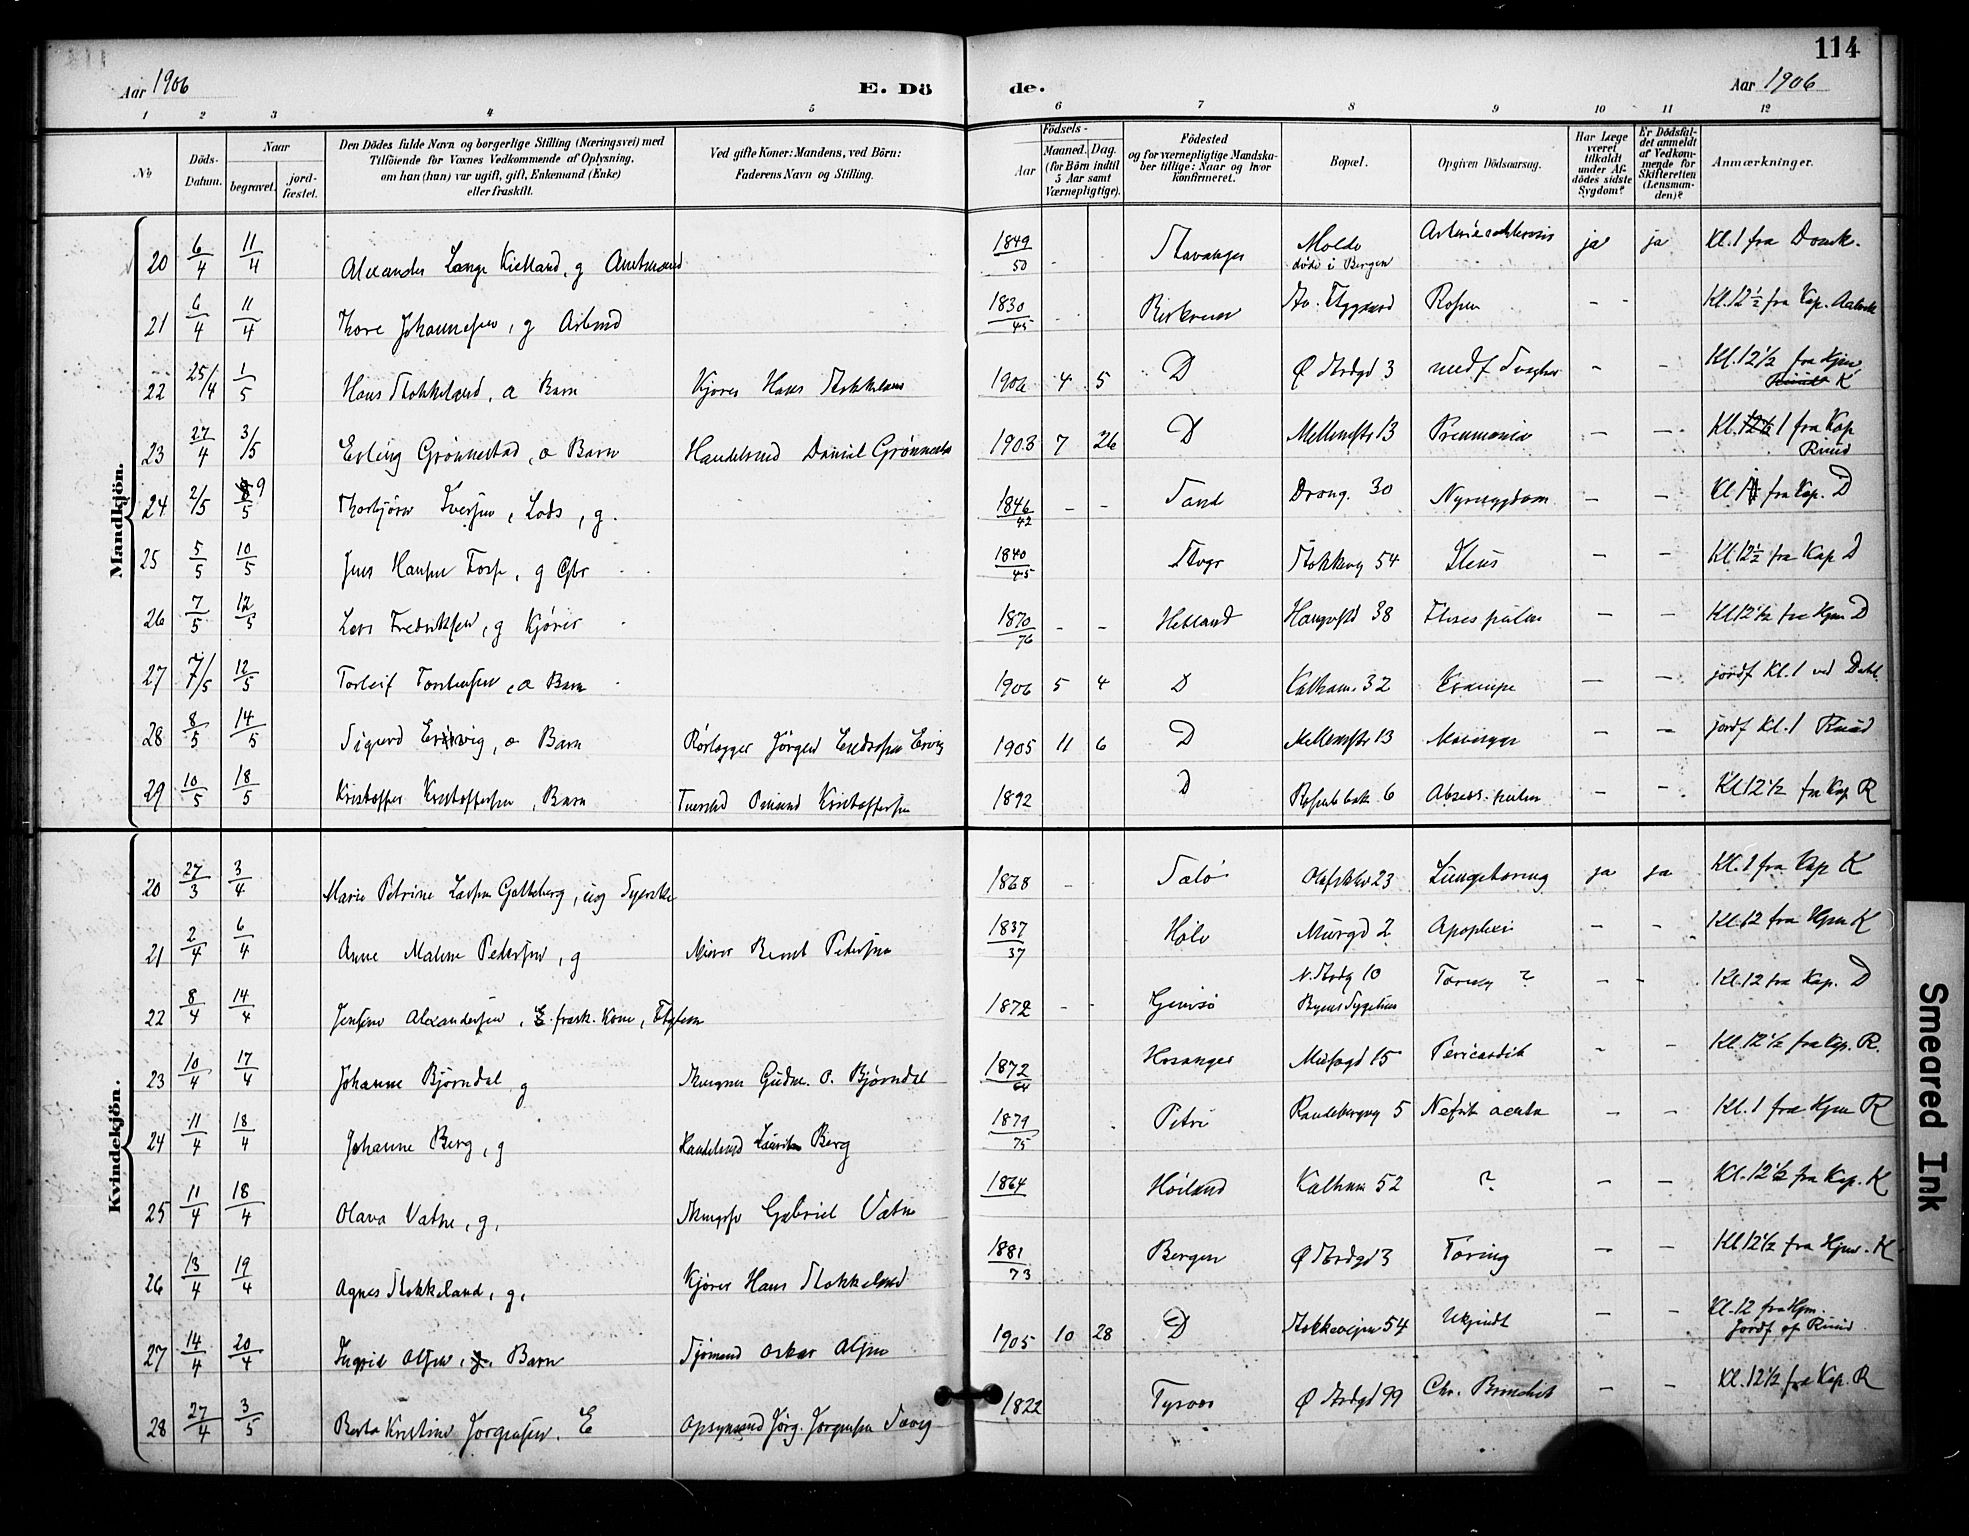 114
Aar 1906
E. Dö de.
Aar 1906
1 2 3 4 5 6 7 8 9 10 11 12
No
Döds-Datum.
Naar
begravet.
jord-fæstet.
Den Dödes fulde Navn og borgerlige Stilling (Næringsvei) med
Tilföiende for Voxnes Vedkommende af Oplysning,
om han (hun) var ugift, gift, Enkemand (Enke)
eller fraskilt.
Ved gifte Koner: Mandens, ved Börn:
Faderens Navn og Stilling.
Födsels-
Aar
Maaned. Dag.
(for Börn indtil
5 Aar samt
Værnepligtige).
Födested
og for værnepligtige Mandska-
ber tillige: Naar og hvor
konfirmeret.
Bopæl.
Opgiven Dödsaarsag.
Har Læge
været
tilkaldt
under Af-
dödes sidste
Sygdom?
Er Dödsfal-
det anmeldt
af Vedkom-
mende for
Skifteretten
(Lensman-
den)?
Anmærkninger.
Mandkjön.
20 6/4 11/4 Alexander Lange Kielland, g Amtmand 1849/50 - - Stavanger Molde döde i Bergen ja ja Kl. 1 fra Domk.
21 6/4 11/4 Thore Johannesen, g Arbmd 1830/45 - - Birkrem - - Kl. 12 1/2 fra Kap.
22 25/4 1/5 Hans Stokkeland, a Barn Kjörer Hans Stokkeland 1906 4 5 D Ø Strdgd 3 medf - - Kl. 12 1/2 fra Hjm K
23 27/4 3/5 Erling Grönnestad, a Barn Handelsmd Daniel Grönnestad 1903 7 26 D Mellemstr 13 Pneumonia - - Kl. 1 fra Kap Ruud
24 2/5 9/5 Thorbjörn Iversen, Lods, g. 1846/42 - - Sand 30 Nyresygdom - - Kl 1 fra Kap. D
25 5/5 10/5 Jens Hansen Torp, g Gbr 1840/45 Stvgr Stokkevg 54 Ileus - - Kl 12 1/2 fra Kap D
26 7/5 12/5 Lars Fredriksen, g Kjörer 1870/76 - - Hetland 38 Ftisis pulm - - Kl 12 1/2 fra Hjm D
27 7/5 12/5 Torleif Torstensen, a Barn 1906 5 4 D Kalham. 32 Krampe - - jordf Kl. 1 ved Dahl.
28 8/5 14/5 Sigurd Ervig, a Barn Rörlægger Jörgen Endresen Ervig 1905 11 6 D Mellemstr 13 - - jordf Kl. 1 Ruud
29 10/5 18/5 Kristoffer Kristoffersen, Barn Omund Kristoffersen 1892 D 6 Absess. pulm - - Kl 12 1/2 fra Kap R
Kvindekjön.
20 27/3 3/4 Marie Petrine Larsen Gotteberg, ug Syerske 1868 - Olafsklev 23 Lungetæring ja ja Kl. 1 fra Kap K
21 2/4 6/4 Anne Malene Pedersen, g Murer Bernt Pedersen 1837/37 Hole Murgd 2 Apoplexi - - Kl. 12 fra Hjm K
22 8/4 14/4 Jensine Alexandersen, frask. Kone 1872 - - N. Strdg 10 Byens Sygehus ? - - Kl. 12 fra Kap. D
23 10/4 17/4 Johanne Björndal g Gudm. O. Björndal 1872/64 Hosanger 15 Pericardit - - Kl. 12 1/2 fra Kap. R.
24 11/4 18/4 Johanne Berg, g Handelsmd Lauritz Berg 1879/75 Petri Randebergvg 5 Nefrit acuta - - Kl. 1 fra Hjm R
25 11/4 18/4 Olava Vatne, g, Gabriel Vatne 1864 Höiland Kalham 52 ? - - Kl. 12 1/2 fra Kap. K
26 13/4 19/4 Agnes Stokkeland, g, Kjörer Hans Stokkeland 1881/73 Bergen Ø Strdgd 3 Tæring - - Kl 12 1/2 fra Hjm. K
27 14/4 20/4 Ingrid Olsen, Barn Sjömand Oskar Olsen 1905 10 28 D Stokkeveien 54 Ukjendt - - Kl. 12 fra Hjm. Jordf af Ruud
28 27/4 3/5 Berta Kristine Jörgensen. E Opsynsmd Jörg. Jörgensen 1822 Tysvær Ø Strdgd 99 Chr. Bronchit - - Kl. 12 1/2 fra Kap. R
Smeared Ink